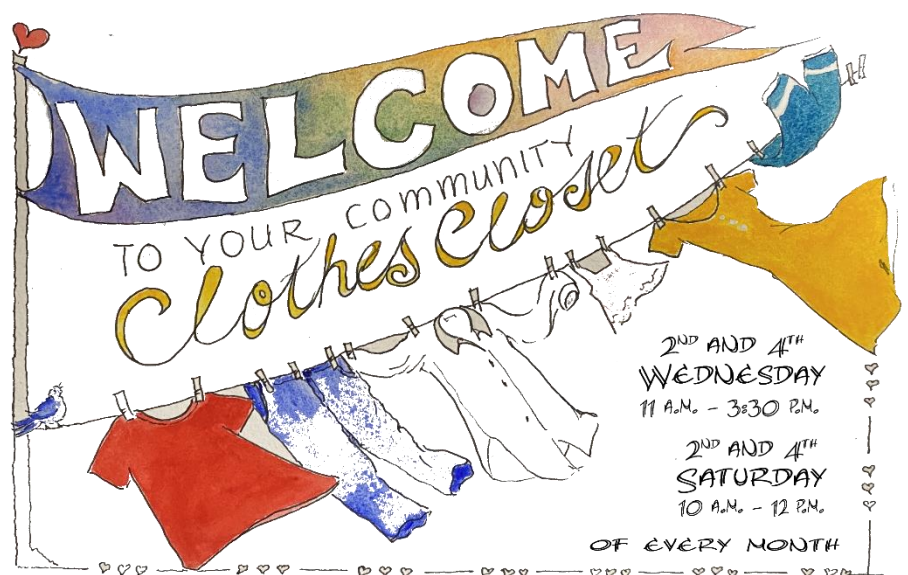 WELCOME
TO YOUR COMMUNITY
Clothes Closet
2ND AND 4TH
WEDNESDAY
11 A.M. - 3:30 P.M.
2ND AND 4TH
SATURDAY
10 A.M. - 12 P.M.
OF EVERY MONTH